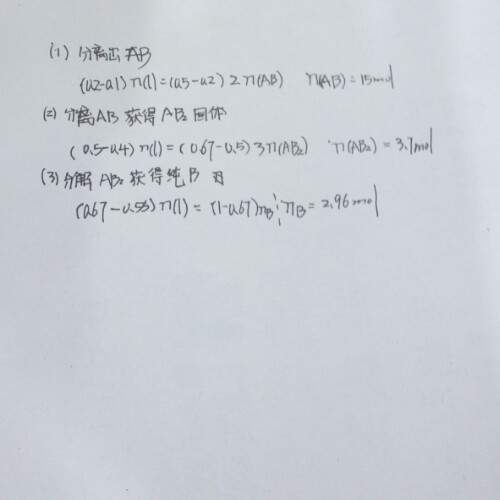 (1) 分离出 AB
(0.2-0.1) n(l) = (0.5-0.2) 2 n(AB)  n(AB) = 15mol
(2) 分离 AB 获得 AB₂ 固体
(0.5-0.4) n(l) = (0.67-0.5) 3 n(AB₂)  n(AB₂) = 3.7mol
(3) 分解 AB₂ 获得纯 B
(0.67-0.58) n(l) = (1-0.67) nB  nB = 2.96mol